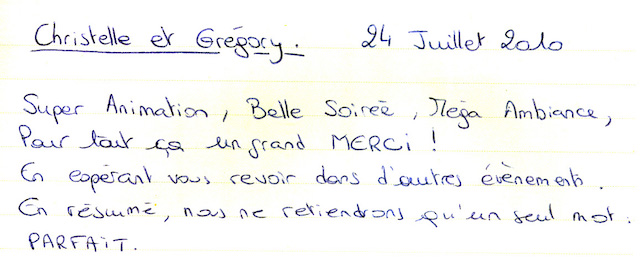 Christelle et Grégory. 24 Juillet 2010
Super Animation, Belle Soirée, Mega Ambiance,
Pour tout ça un grand MERCI !
En espérant vous revoir dans d'autres évènements.
En résumé, nous ne retiendrons qu'un seul mot :
PARFAIT.